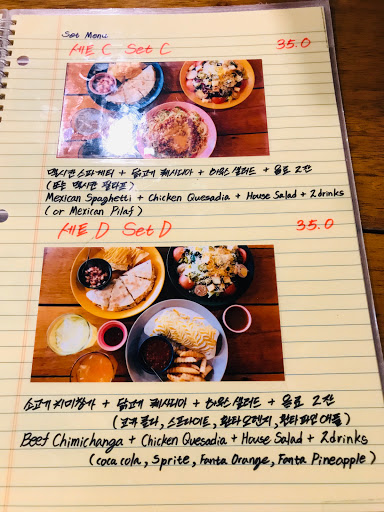 Set Menu
세트 C Set C 35.0
멕시칸 스파게티 + 닭고기 퀘사디아 + 하우스 샐러드 + 음료 2잔
(또는 멕시칸 필라프)
Mexican Spaghetti + Chicken Quesadia + House Salad + 2drinks
(or Mexican Pilaf)
세트 D Set D 35.0
소고기 치미창가 + 닭고기 퀘사디아 + 하우스 샐러드 + 음료 2잔
(코카콜라, 스프라이트, 환타오렌지, 환타파인애플)
Beef Chimichanga + Chicken Quesadia + House Salad + 2drinks
(coca cola, Sprite, Fanta Orange, Fanta Pineapple)